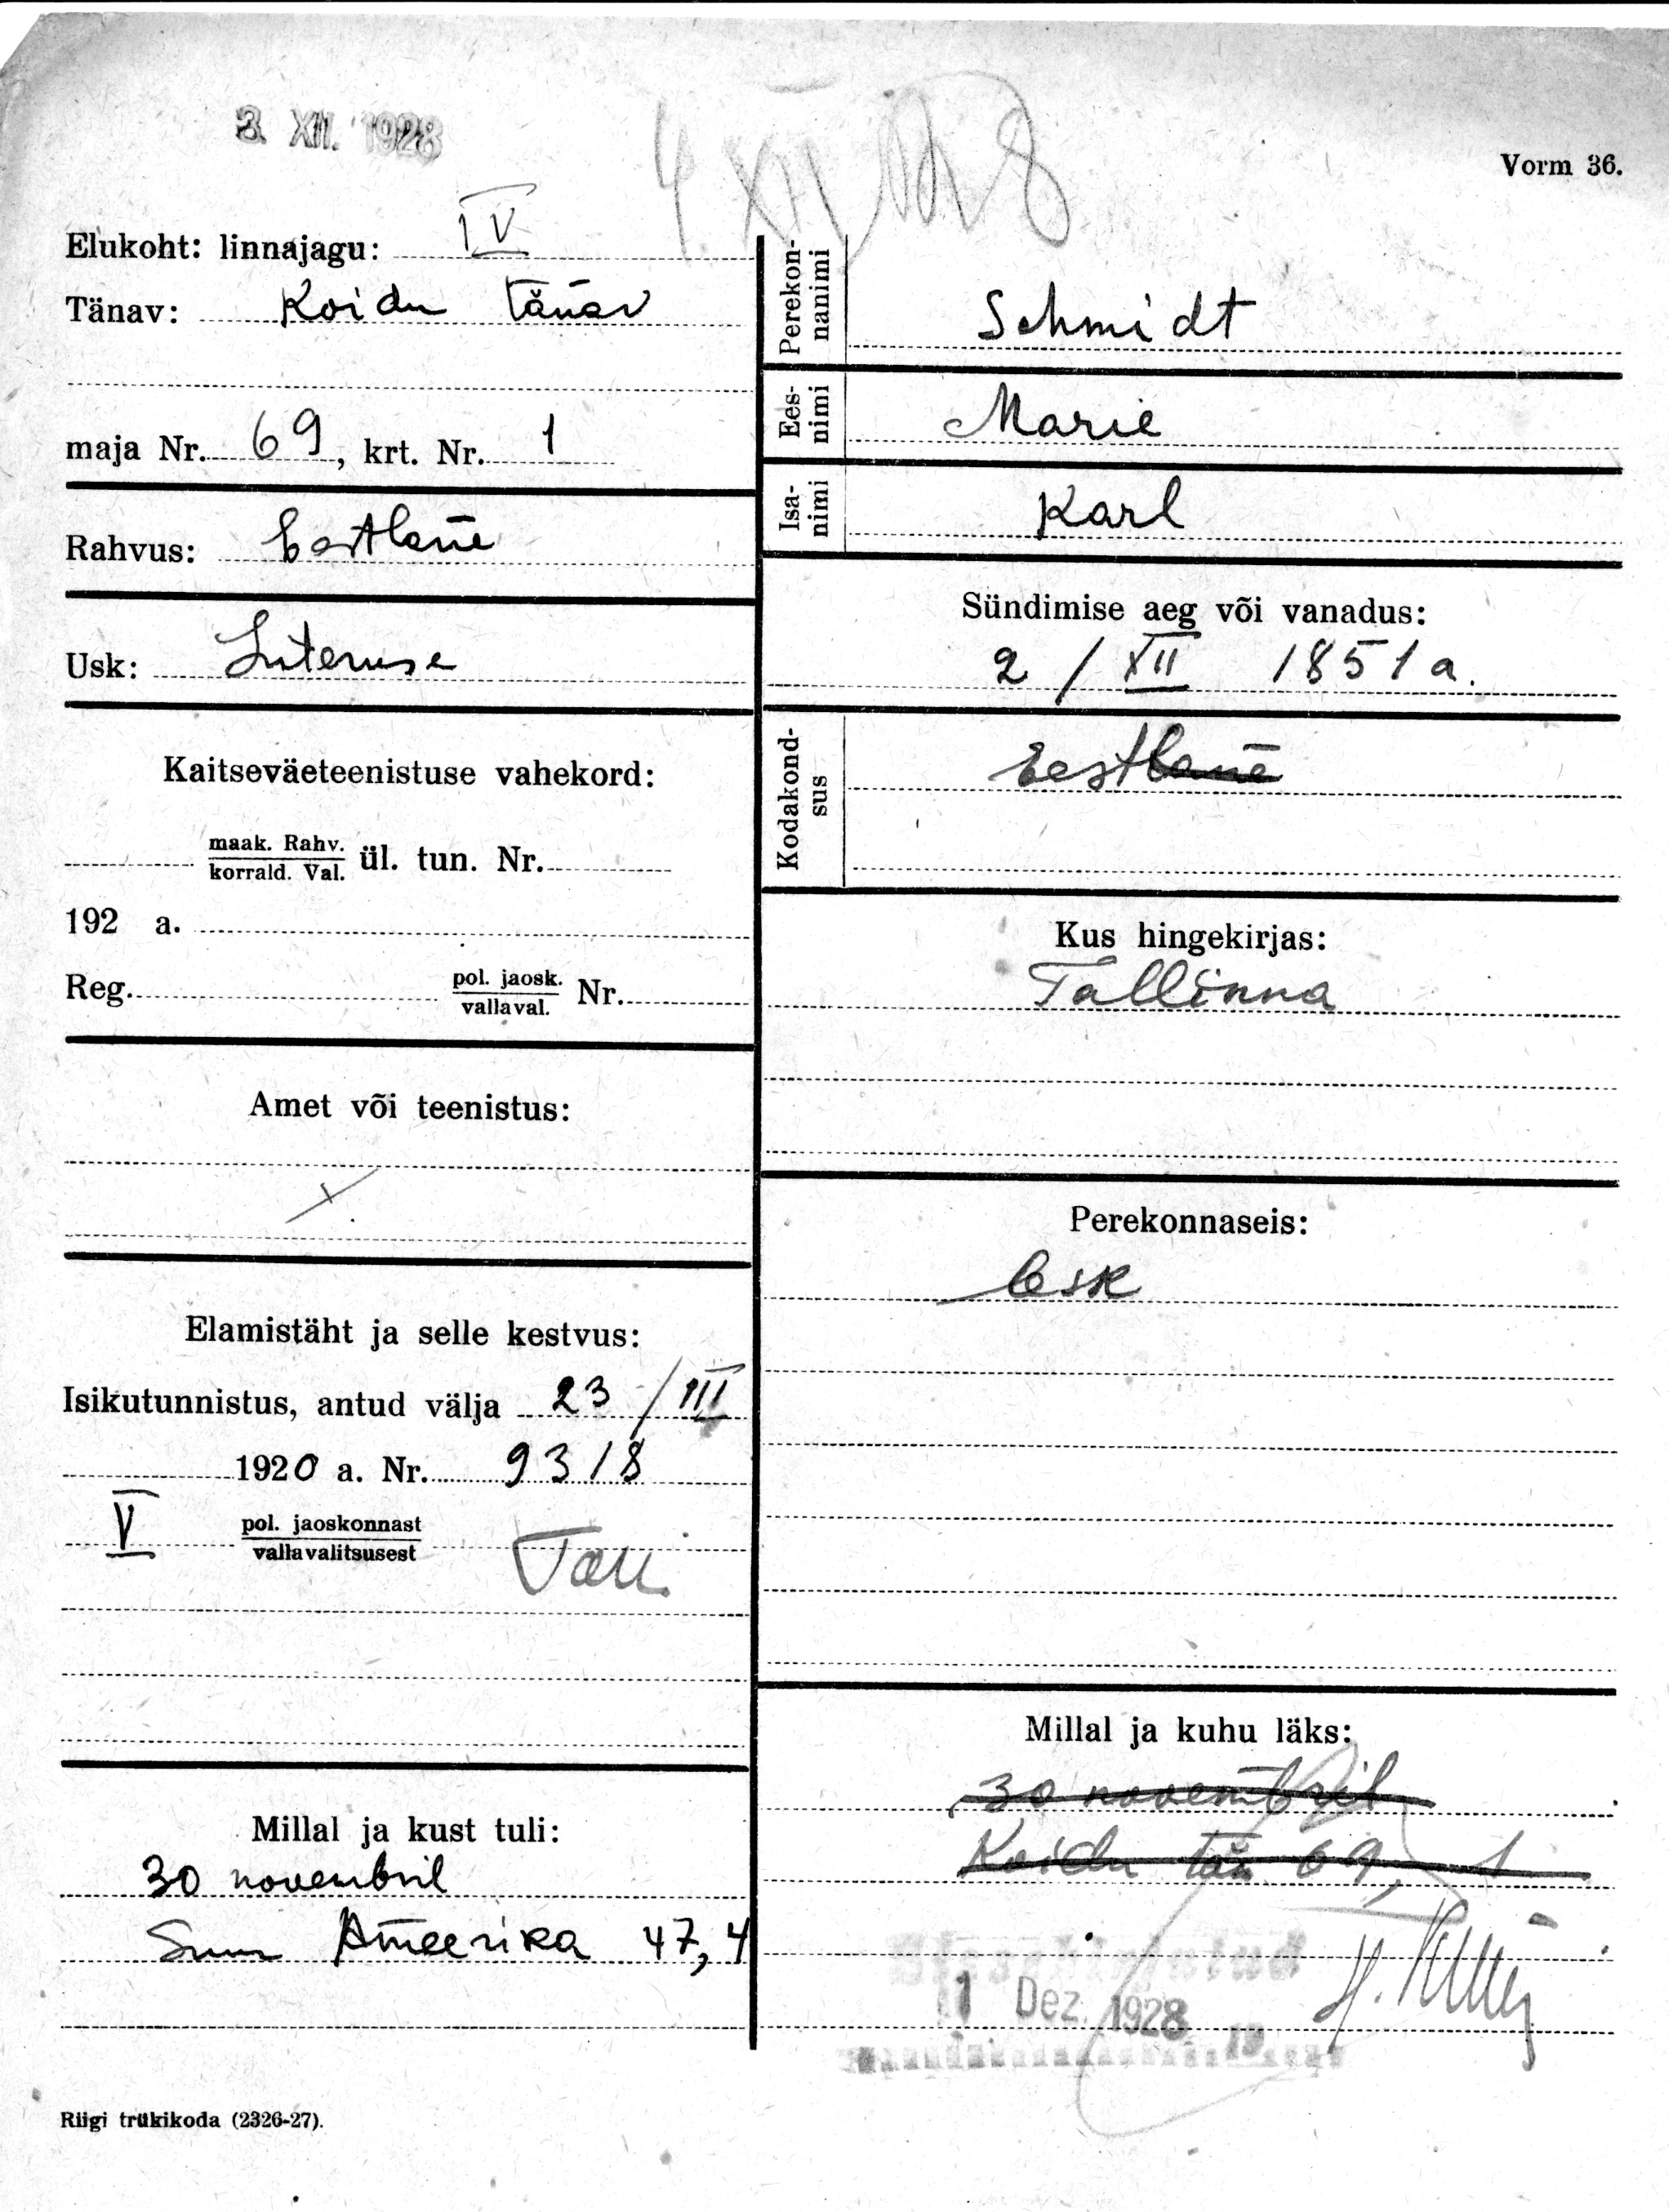 3. XII. 1928
4 XII 28
Vorm 36.
Elukoht: linnajagu: IV
Tänav: Koidu tänav
maja Nr. 69, krt. Nr. 1
Rahvus: Eestlane
Usk: Luteruse
Kaitseväeteenistuse vahekord:
maak. Rahv.
korrald. Val. ül. tun. Nr.
192 a.
Reg. pol. jaosk.
vallaval. Nr.
Amet või teenistus:
Elamistäht ja selle kestvus:
Isikutunnistus, antud välja 23 / III
1920 a. Nr. 9318
V pol. jaoskonnast
vallavalitsusest Tall
Millal ja kust tuli:
30 novembril
Suur Ameerika 47, 4
Perekon-
nanimi
Schmidt
Ees-
nimi
Marie
Isa-
nimi
Karl
Sündimise aeg või vanadus:
2 / XII 1851 a.
Kodakond-
sus
Eestlane
Kus hingekirjas:
Tallinna
Perekonnaseis:
lesk
Millal ja kuhu läks:
30 novembril
Koidu tän 69, 1
Sissekirjutud
1 Dez. 1928
Riigi trükikoda (2326-27).